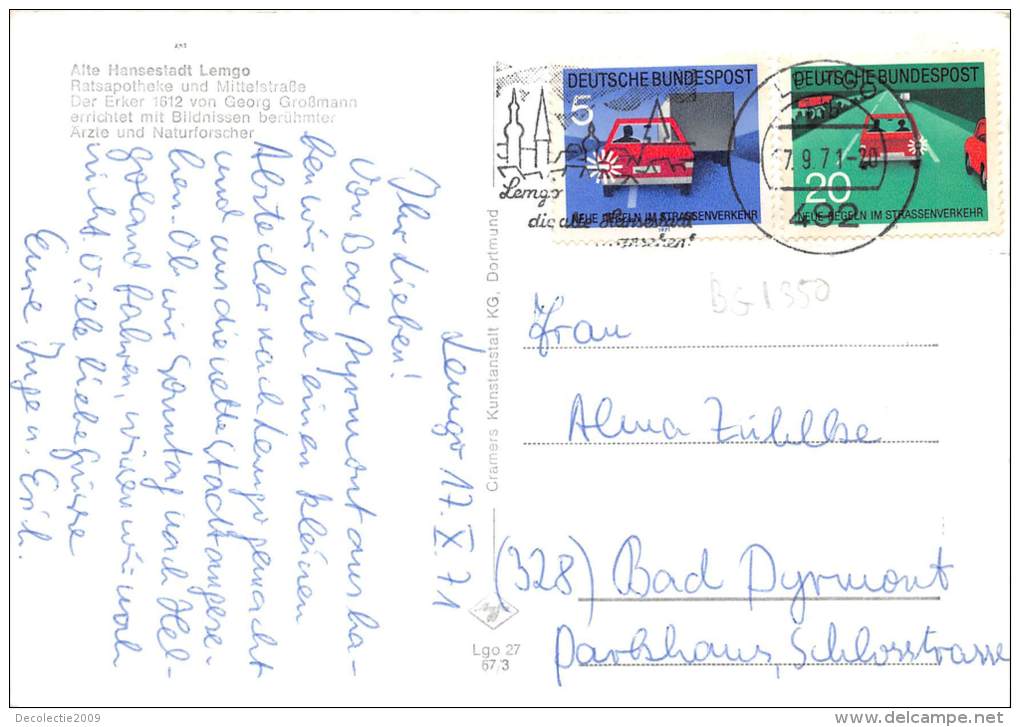 Alte Hansestadt Lemgo
Ratsapotheke und Mittelstraße
Der Erker 1612 von Georg Großmann
errichtet mit Bildnissen berühmter
Ärzte und Naturforscher
Lemgo 17. X. 71
Ihr Lieben!
Von Bad Pyrmont aus ha-
ben wir noch einen kleinen
Abstecher nach Lemgo gemacht
und uns die nette Stadt angese-
hen. Ob wir Sonntag nach Hel-
goland fahren, wissen wir noch
nicht. Viele liebe Grüsse
Eure Inge u. Erich.
Cramers Kunstanstalt KG, Dortmund
Lgo 27
67/3
DEUTSCHE BUNDESPOST
5
NEUE REGELN IM STRASSENVERKEHR
1971
DEUTSCHE BUNDESPOST
20
NEUE REGELN IM STRASSENVERKEHR
Lemgo
die alte Hansestadt
LEMGO
17.9.71-20
492
BG 1350
Frau
Alma Zühlke
(328) Bad Pyrmont
Parkhaus, Schlosstrasse
Decolectie2009
www.delcampe.net